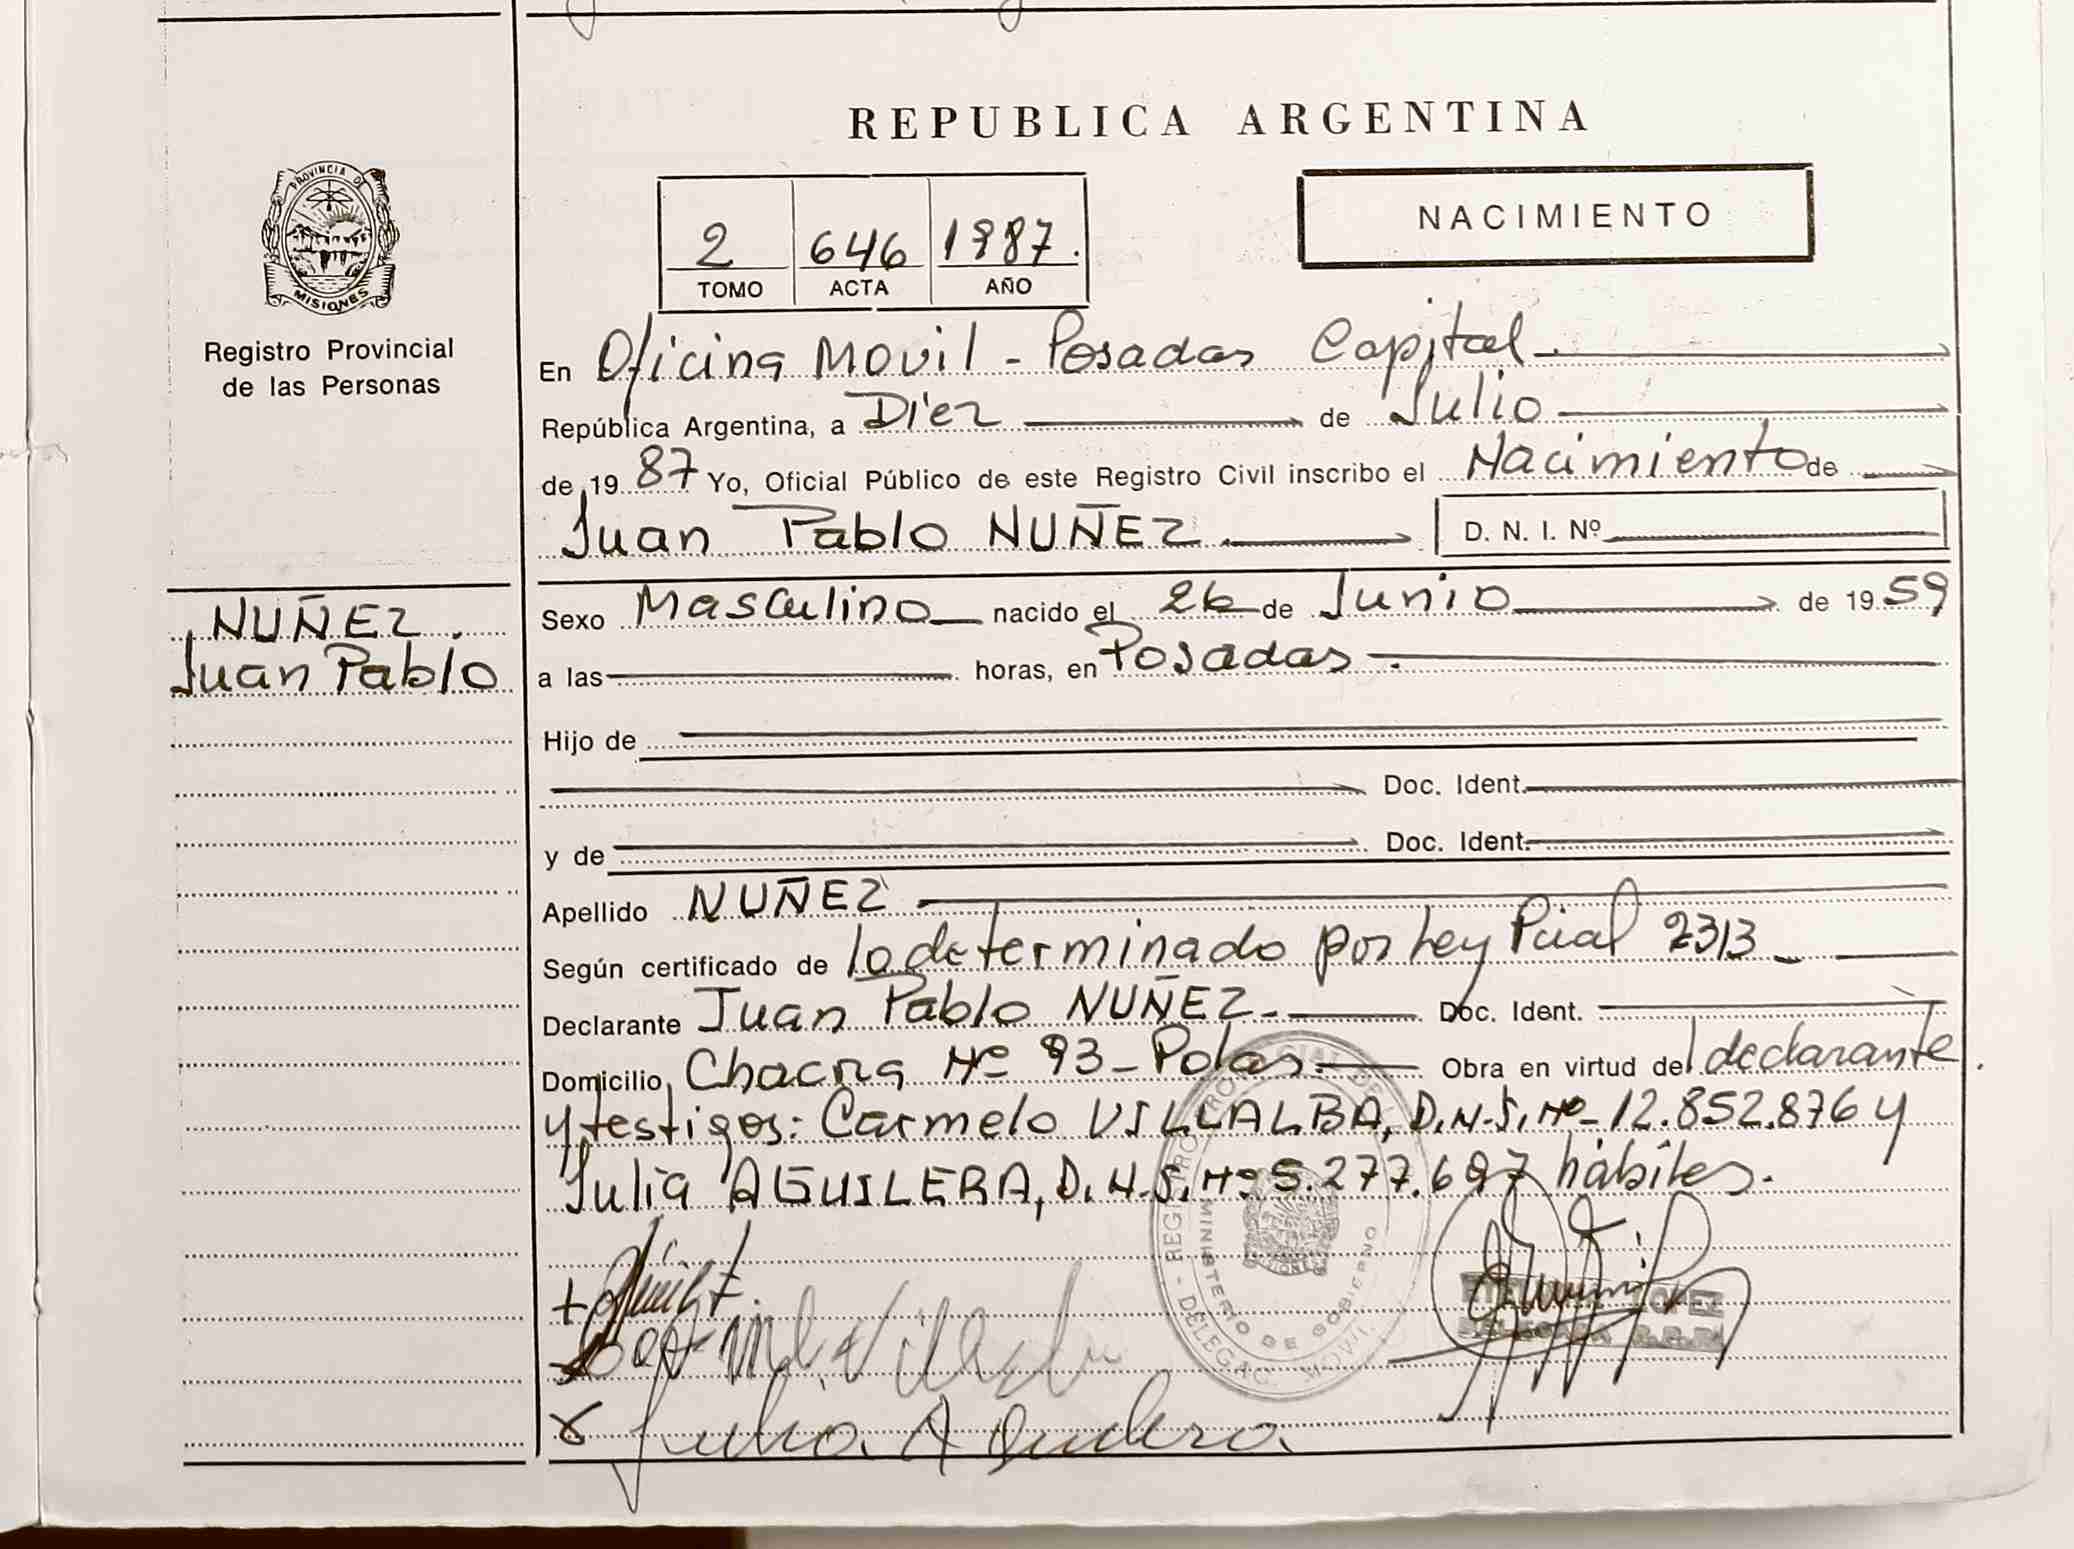 REPUBLICA ARGENTINA
PROVINCIA DE
MISIONES
Registro Provincial
de las Personas
2 646 1987.
TOMO ACTA AÑO
NACIMIENTO
En Oficina Movil - Posadas Capital.
República Argentina, a Diez de Julio
de 19 87 Yo, Oficial Público de este Registro Civil inscribo el Nacimiento de
Juan Pablo NUÑEZ. D. N. I. Nº
NUÑEZ.
Juan Pablo
Sexo Masculino nacido el 26 de Junio de 19 59
a las horas, en Posadas.
Hijo de
Doc. Ident.
y de Doc. Ident.
Apellido NUÑEZ
Según certificado de lo determinado por Ley Pcial 2313
Declarante Juan Pablo NUÑEZ. Doc. Ident.
Domicilio Chacra Nº 93 - Pdas. Obra en virtud del declarante
y testigos: Carmelo VILLALBA, D.N.I. Nº 12.852.876 y
Julia AGUILERA, D.N.I. Nº 5.277.697 hábiles.
MINISTERIO DE GOBIERNO
Julia Aguilera